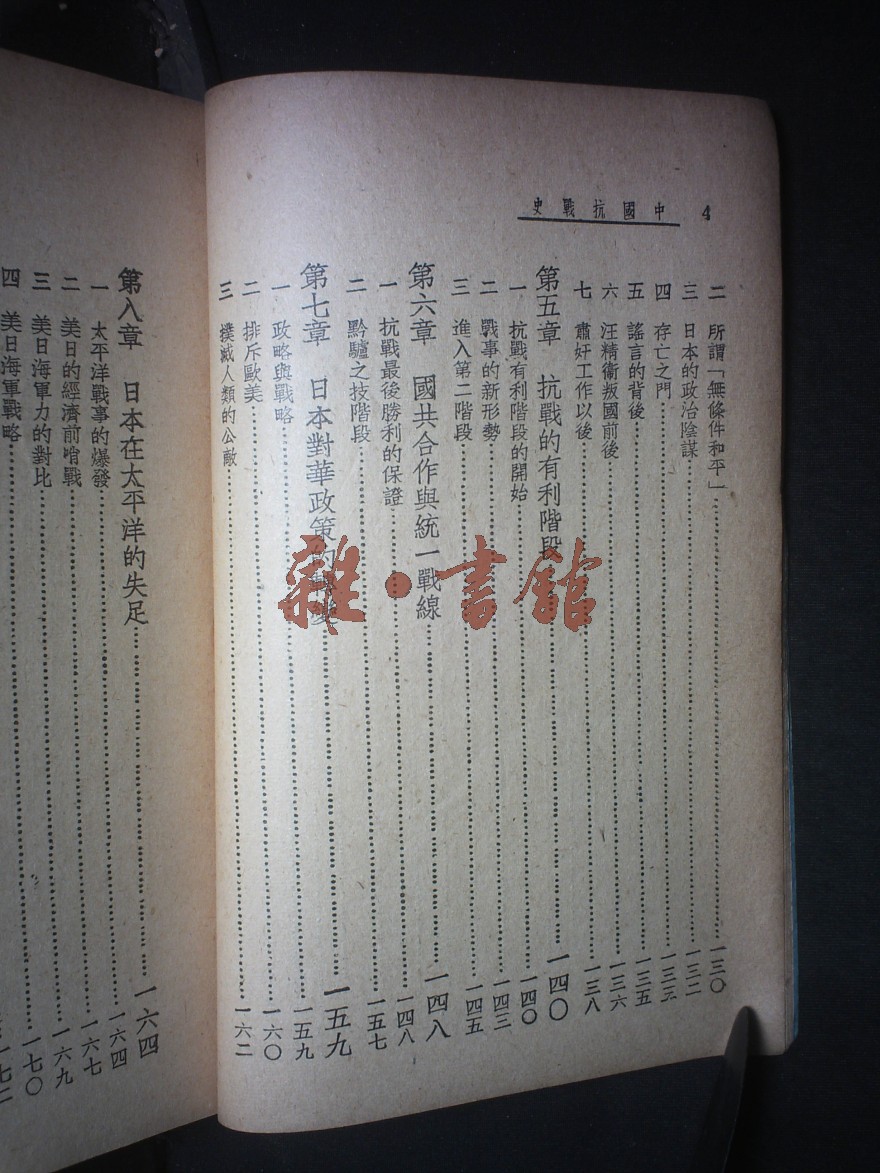 中國抗戰史 4
二 所謂「無條件和平」……一三〇
三 日本的政治陰謀……一三二
四 存亡之門……一三三
五 謠言的背後……一三五
六 汪精衞叛國前後……一三六
七 肅奸工作以後……一三八
第五章 抗戰的有利階段……一四〇
一 抗戰有利階段的開始……一四〇
二 戰事的新形勢……一四三
三 進入第二階段……一四五
第六章 國共合作與統一戰線……一四八
一 抗戰最後勝利的保證……一四八
二 黔驢之技階段……一五七
第七章 日本對華政策的轉變……一五九
一 政略與戰略……一五九
二 排斥歐美……一六〇
三 撲滅人類的公敵……一六二
第八章 日本在太平洋的失足……一六四
一 太平洋戰事的爆發……一六四
二 美日的經濟前哨戰……一六七
三 美日海軍力的對比……一六九
四 美日海軍戰略……一七〇
一七二
雜·書館